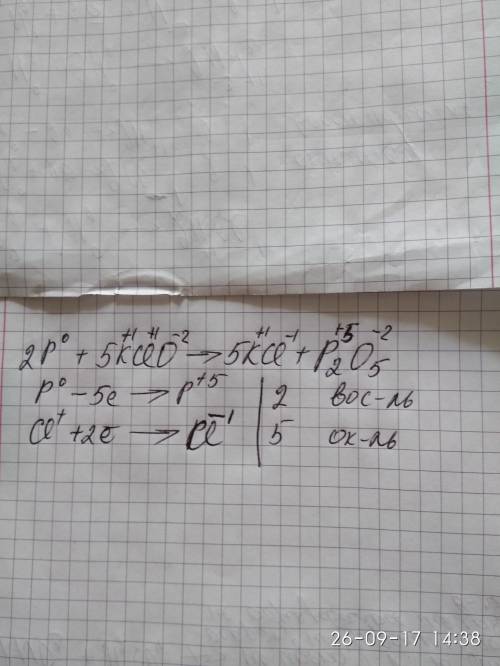 2P⁰ + 5K⁺¹Cl⁺¹O⁻² → 5K⁺¹Cl⁻¹ + P₂⁺⁵O₅⁻²
P⁰ - 5e → P⁺⁵ | 2 вос-ль
Cl⁺ + 2e → Cl⁻¹ | 5 ок-ль
26-09-17 14:38